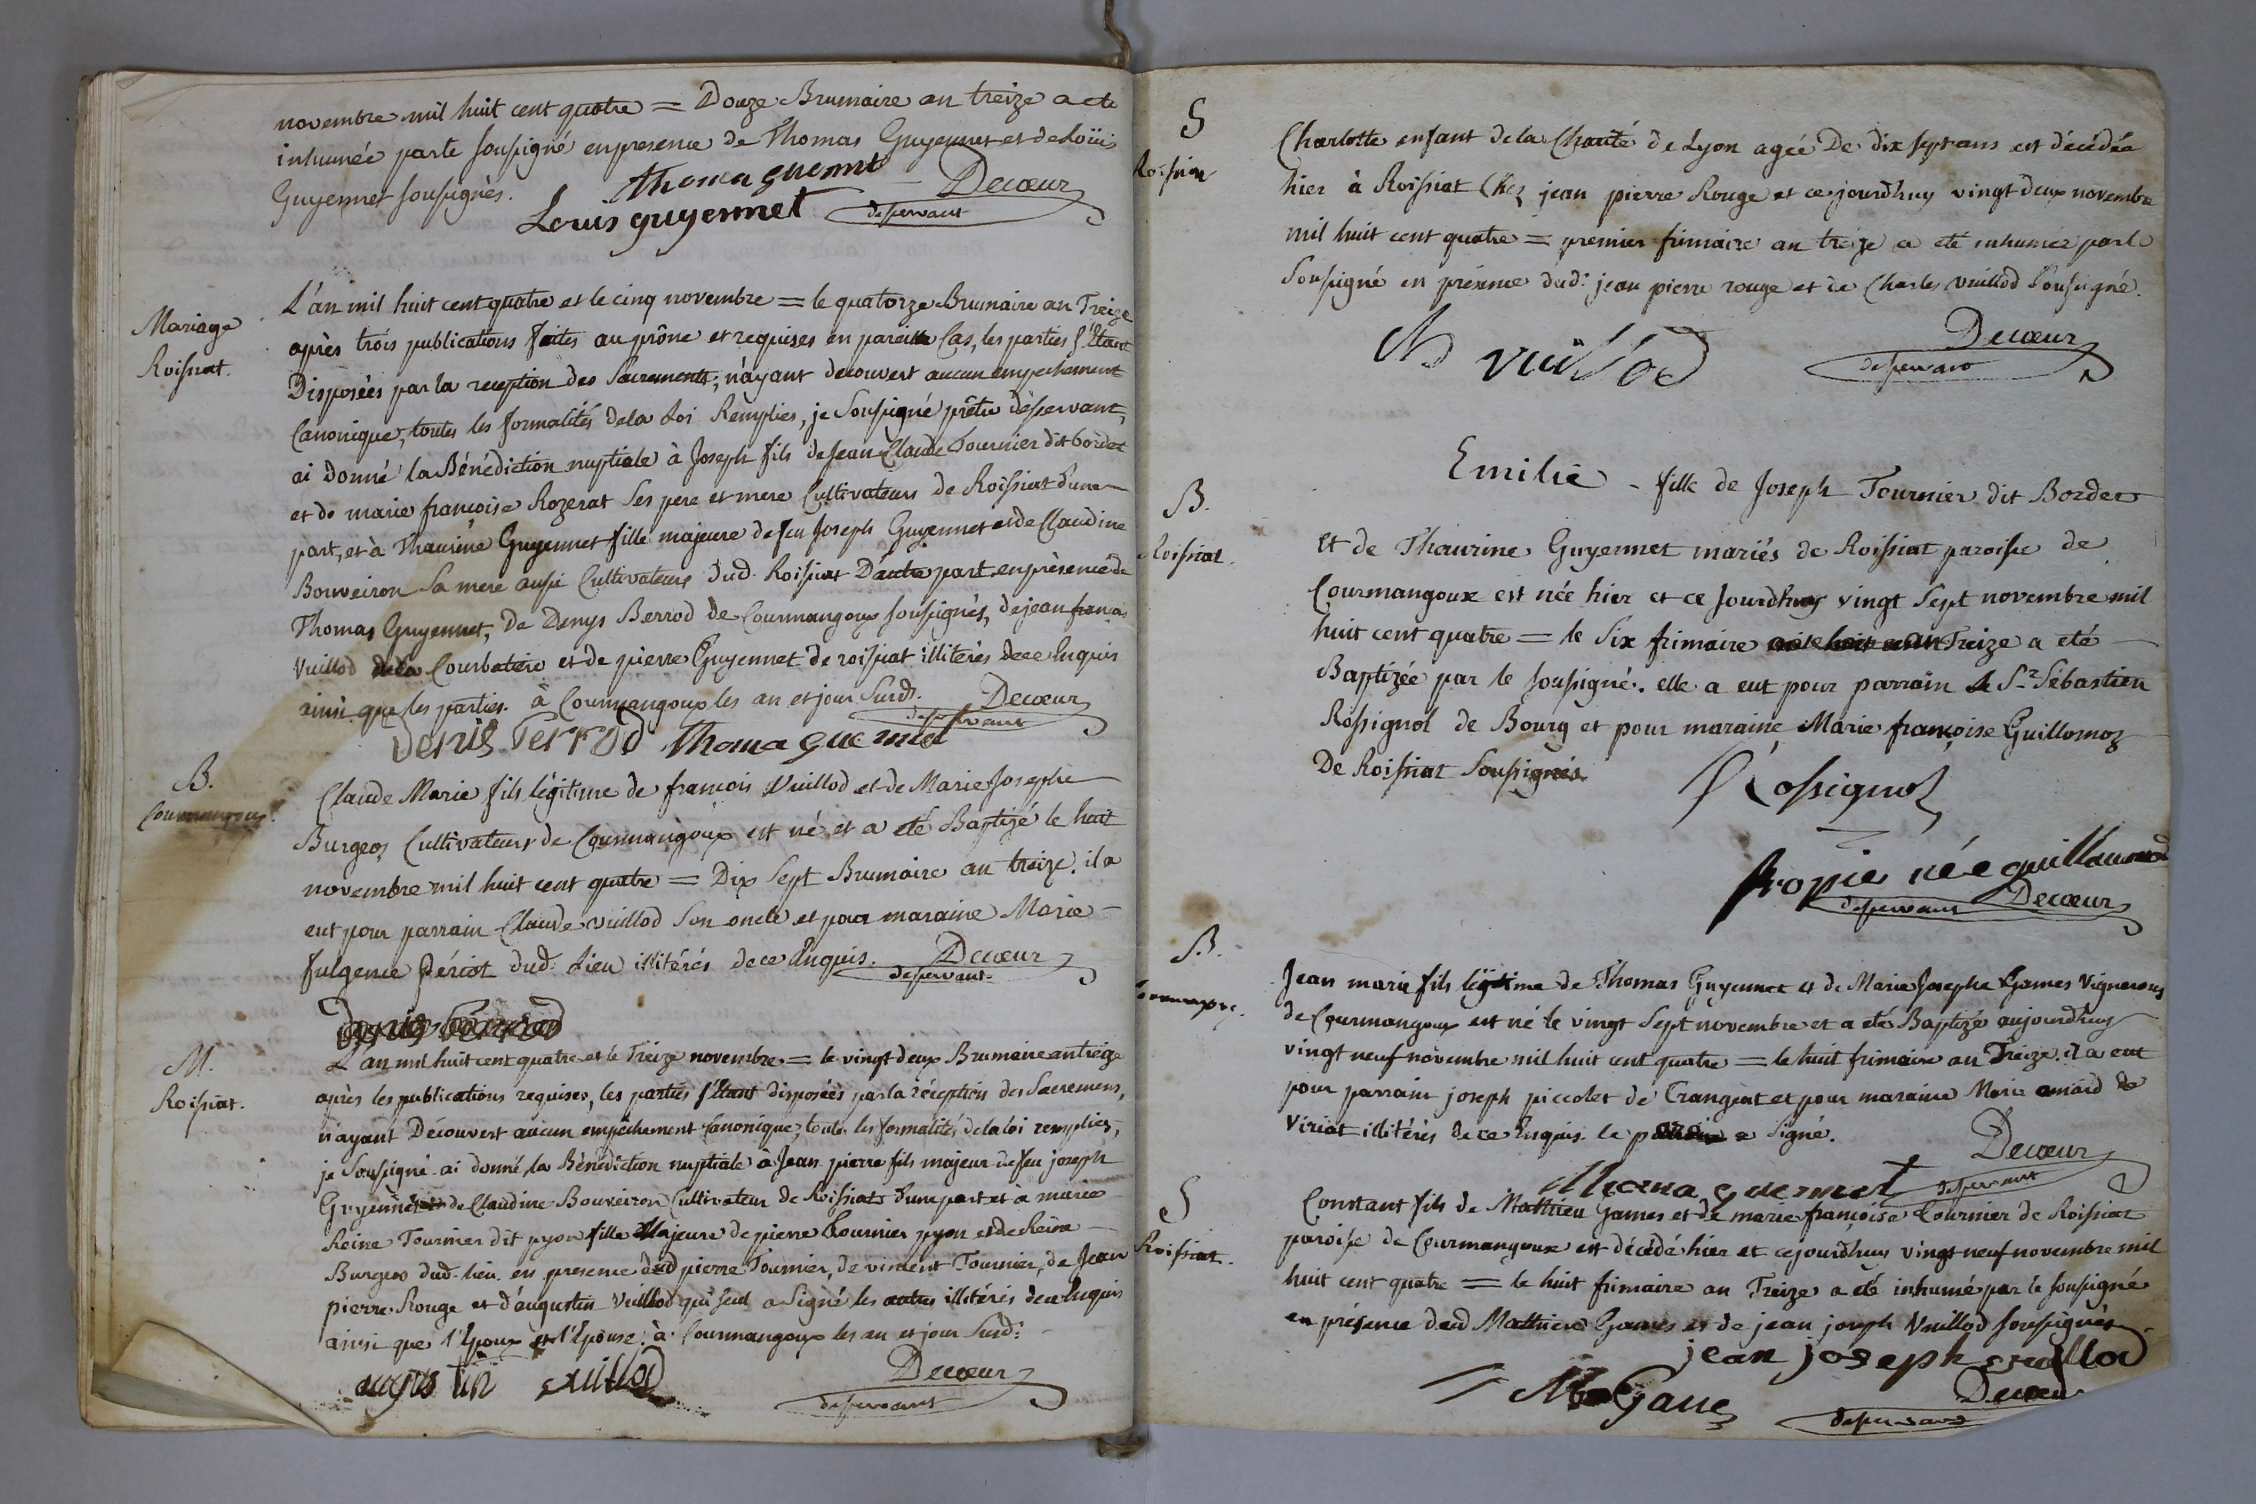 novembre mil huit cent quatre = Douze Brumaire an treize a eté
inhumée par le soussigné en presence de Thomas Guyennet et de Loüis
Guyennet soussignés.
thoma guennet
Decœur
desservant
Louis guyennet
Mariage
Roissiat.
L'an mil huit cent quatre et le cinq novembre = le quatorze Brumaire an Treize
après trois publications faites au prône et requises en pareille Cas, les parties s'étant
Disposées par la reception des Sacrements, n'ayant decouvert aucun empechement
Canonique, toutes les formalités de la Loi Remplies, je Soussigné prêtre desservant,
ai donné la Bénédiction nuptiale à Joseph fils de Jean Claude Tournier dit bordet
et de marie françoise Rozerat ses pere et mere Cultivateurs de Roissiat d'une
part, et à Thaurine Guyennet fille majeure de feu Joseph Guyennet et de Claudine
Bouveiron sa mere aussi Cultivateurs dud. Roissiat D'autre part en présence de
Thomas Guyennet, de Denys Berrod de Courmangoux soussignés, de jean franç.
Vuillod de la Courbatiere et de pierre Guyennet de roissiat illiterés de ce Enquis
ainsi que les parties. à Courmangoux les an et jour Susd.
Decœur
desservant
Denis berrod thoma guennet
B.
Courmangoux.
Claude Marie fils légitime de francois Vuillod et de Marie Josephe
Burgeos Cultivateurs de Courmangoux est né et a eté Baptizé le huit
novembre mil huit cent quatre = Dix Sept Brumaire an treize. il a
eut pour parrain Claude vuillod Son oncle et pour maraine Marie
fulgence Périot dud. Lieu illitérés de ce Enquis.
Decœur
desservant.
M.
Roissiat.
L'an mil huit cent quatre et le Treize novembre = le vingt deux Brumaire an treize
après les publications requises, les parties s'étant disposées par la réception des Sacremens,
n'ayant Découvert aucun empêchement Canonique, toutes les formalités de la loi remplies,
je Soussigné ai donné la Bénédiction nuptiale à Jean pierre fils majeur de feu joseph
Guyennet et de Claudine Bouveiron Cultivateur de Roissiat d'une part et à marie
Reine Tournier dit pyon fille Majeure de pierre Tournier pyon et de Reine
Burgeos dud. lieu. en presence dud pierre Tournier, de vincent Tournier, de Jean
pierre Rouge et d'augustin Vuillod qui seul a Signé les autres illitérés de ce Enquis
ainsi que l'Epoux et l'Epouse: à Courmangoux les an et jour Susd.
Decœur
desservant
augustin vuillod
S
Roissiat
Charlotte enfant de la Charité de Lyon agée De dix sept ans est décédée
hier à Roissiat Chez jean pierre Rouge et ce jourdhuy vingt deux novembre
mil huit cent quatre = premier frimaire an treize a eté inhumée par le
Soussigné en présence dud. jean pierre rouge et de Charles vuillod Soussigné.
vuillod
Decœur
desservant
B.
Roissiat.
Emilie fille de Joseph Tournier dit Bordet
et de Thaurine Guyennet mariés de Roissiat paroisse de
Courmangoux est née hier et ce Jourdhuy vingt Sept novembre mil
huit cent quatre = le Six frimaire an Treize a eté
Baptizée par le soussigné. elle a eut pour parrain le Sr. Sébastien
Rossignol de Bourg et pour maraine Marie françoise Guillomoz
De Roissiat Soussignés.
Rossignol
née guillaumod
Decœur
desservant
B.
Jean marie fils légitime de Thomas Guyennet et de Marie Josephe Games Vignerons
de Courmangoux est né le vingt Sept novembre et a eté Baptizé aujourdhuy
vingt neuf novembre mil huit cent quatre = le huit frimaire an Treize. il a eut
pour parrain joseph piccolet de Crangeat et pour maraine Marie amard de
Viriat illitérés de ce Enquis. le a Signé.
Decœur
desservant
thoma guennet
S
Roissiat.
Constant fils de Mathieu Games et de marie françoise Tournier de Roissiat
paroisse de Courmangoux est décédé hier et ce jourdhuy vingt neuf novembre mil
huit cent quatre = le huit frimaire an Treize a eté inhumé par le soussigné
en présence dud Mathieu Games et de jean joseph Vuillod soussignés
jean joseph vuillod
Decœur
desservant